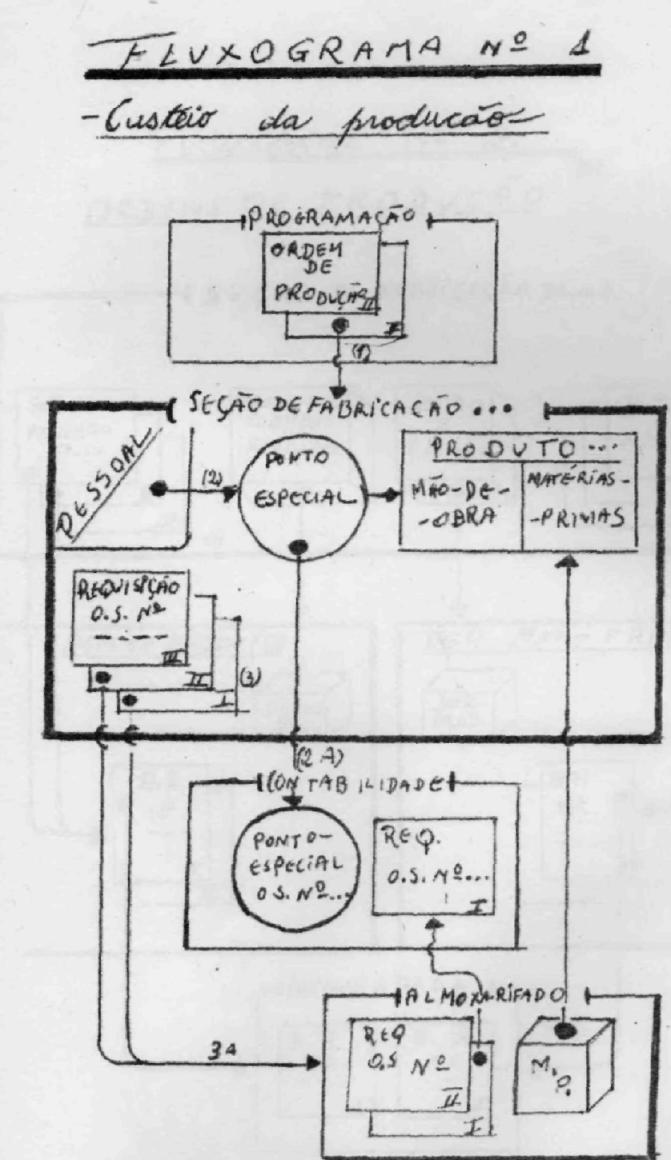 FLUXOGRAMA Nº 1
-Custeio da producão
PROGRAMACÃO
ORDEM
DE
PRODUÇÃO
II
I
(1)
SEÇÃO DE FABRICACÃO ...
PESSOAL
(2)
PONTO
ESPECIAL
PRODUTO ...
MÃO-DE-
-OBRA
MATÉRIAS-
-PRIMAS
REQUISIÇÃO
O.S. Nº
III
II
I
(3)
(2A)
CONTABILIDADE
PONTO-
ESPECIAL
O.S. Nº...
REQ.
O.S. Nº...
I
ALMOXARIFADO
3A
REQ
O.S Nº
II
I
M.
P.